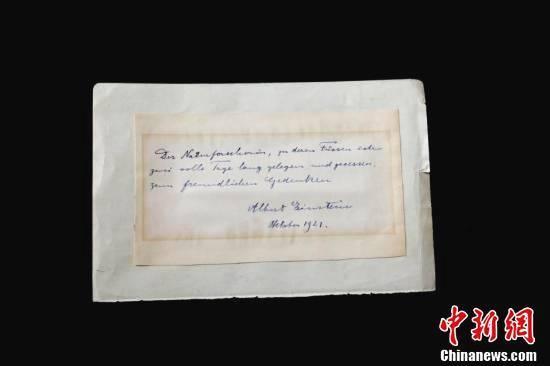 Der Naturforscherin, zu deren Füssen
zwei volle Tage lang gelegen und gesessen,
zum freundlichen Gedenken
Albert Einstein
Oktober 1921.
中新網
Chinanews.com